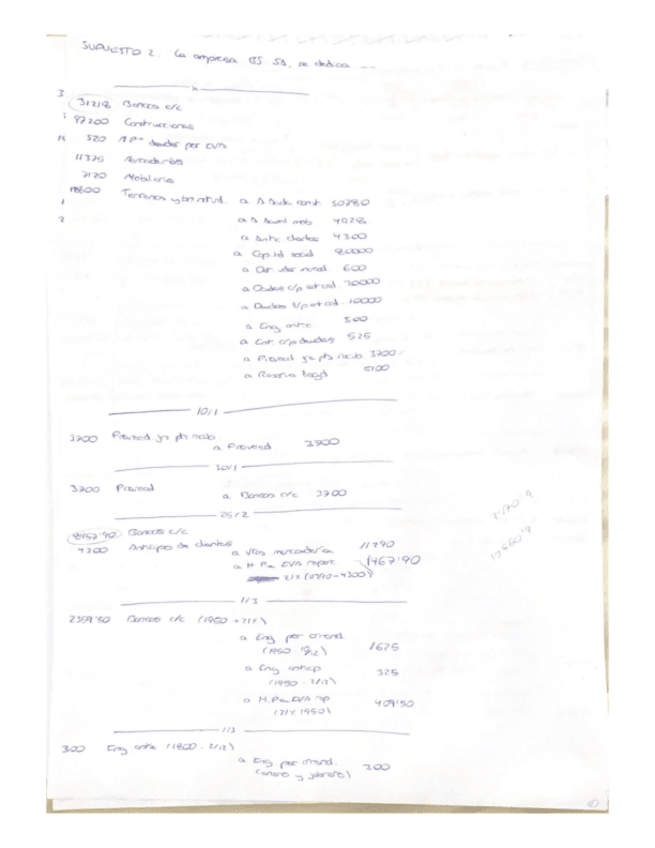 SUPUESTO 2. La empresa SA, se dedica ...
31218 Bancos c/c
97200 Construcciones
520 HP deudor por IVA
11375 Mercaderías
7120 Mobiliario
Terrenos y bn natural. a A Acula const 50780
a A Acuml mob 4928
a Antic clientes 4300
a Capital social 80000
a 600
a Deudas c/p ent cd. 20000
a Deudas l/p ent cd. 10000
a Ing antic 500
a Int. c/p deudas 525
a Proveed fra pte recib. 3700
a Reserva legal 5100
10/1
3700 Proveed fra pte recib.
a Proveed 3700
30/1
3700 Proveed
a Bancos c/c 3700
25/2
8957'90 Bancos c/c
4300 Anticipos de clientes
a Vtas mercadería 11790
a H Pa IVA reperc 1467'90
21% (11790-4300)
1/3
2359'50 Bancos c/c (1950 + 21%)
a Ing por arrend. 1625
a Ing anticip 325
(1950 · 2/12)
a H.Pa IVA rep 409'50
(21% 1950)
1/3
300 Ing antic (1800 · 2/12)
a Ing por arrend. 300
(enero y febrero)
2170'9
17660'9